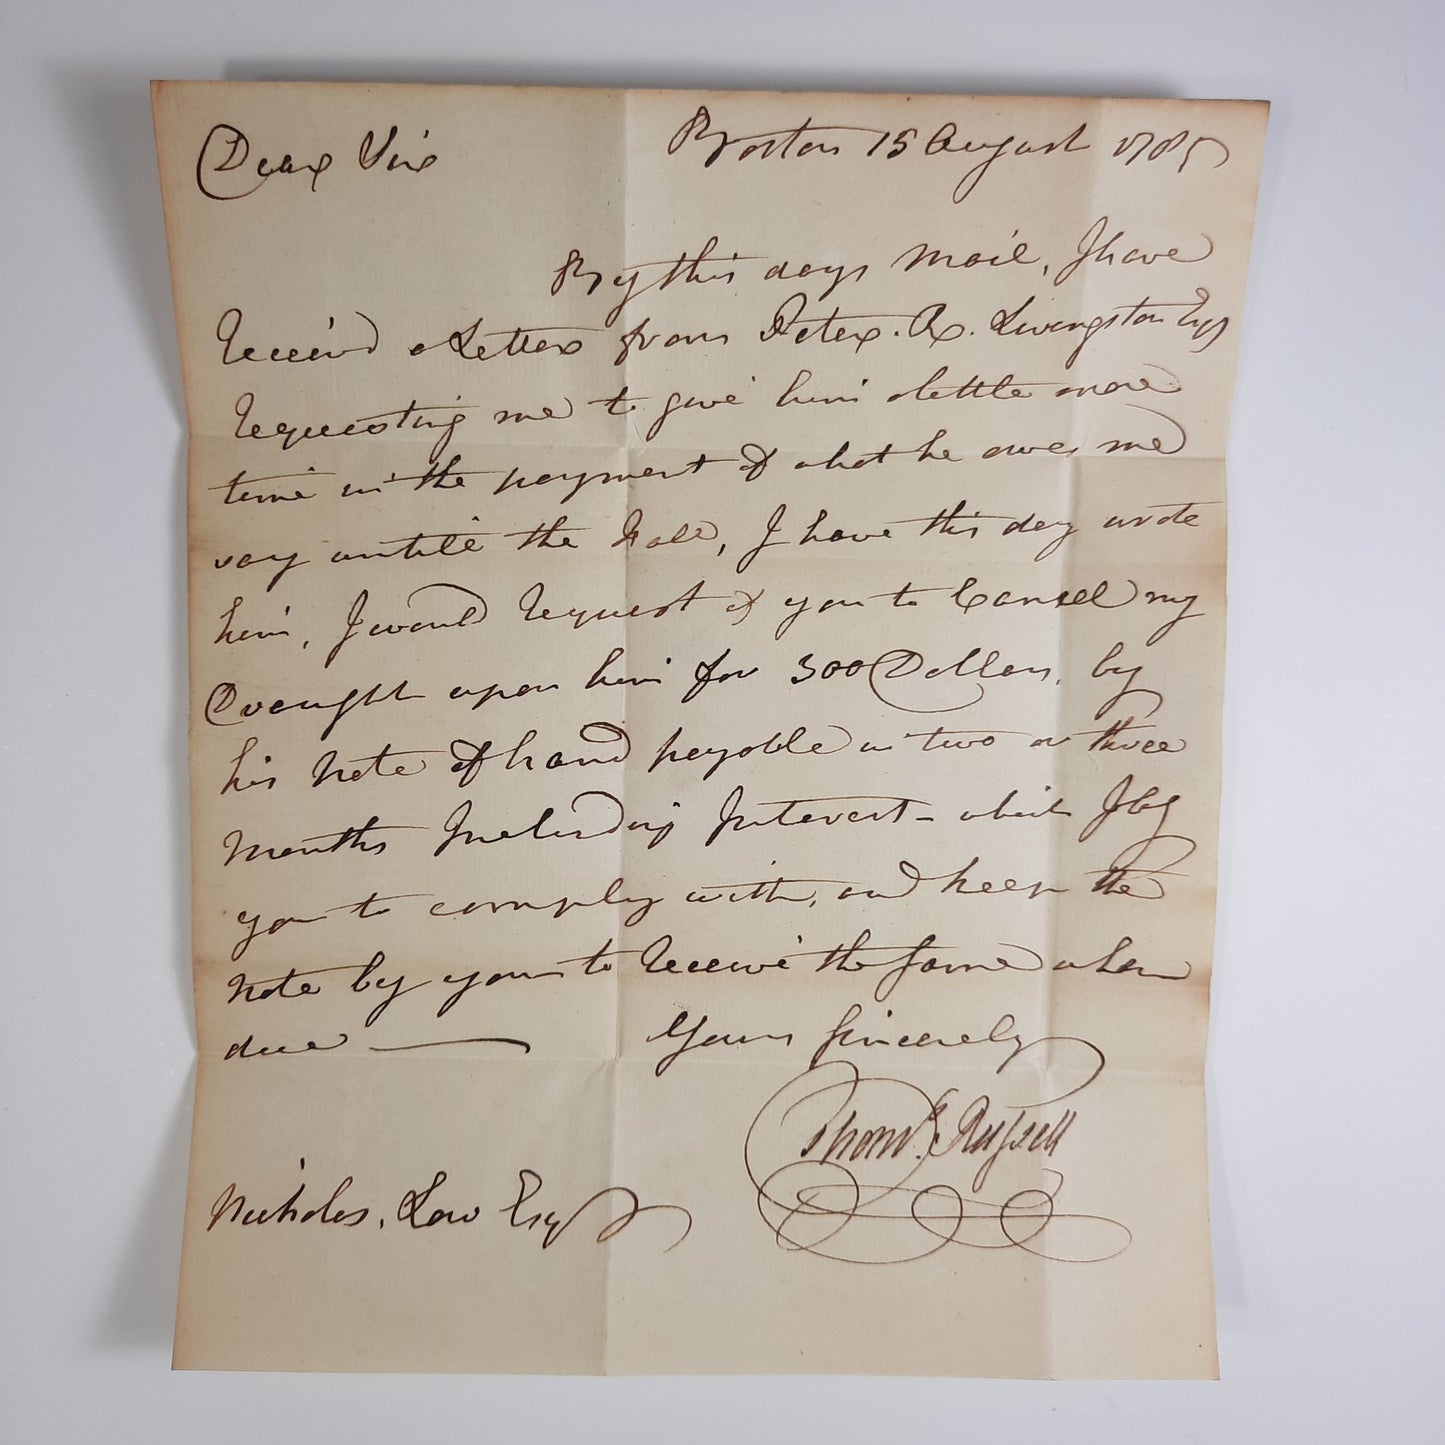 Dear Sir
Boston 15 August 1785
By this days mail, I have
Received a Letter from Peter. R. Livingston Esqr
Requesting me to give him a little more
time in the payment of what he owes me
say untill the Fall, I have this day wrote
him, I would Request of you to Cansel my
Draught upon him for 300 Dollars, by
his Note of hand payable in two or three
Months Including Interest - which I beg
you to comply with, and keep the
Note by you to Receive the same when
due —
Yours Sincerely
Thoms. Russell
Nicholas. Low Esqr